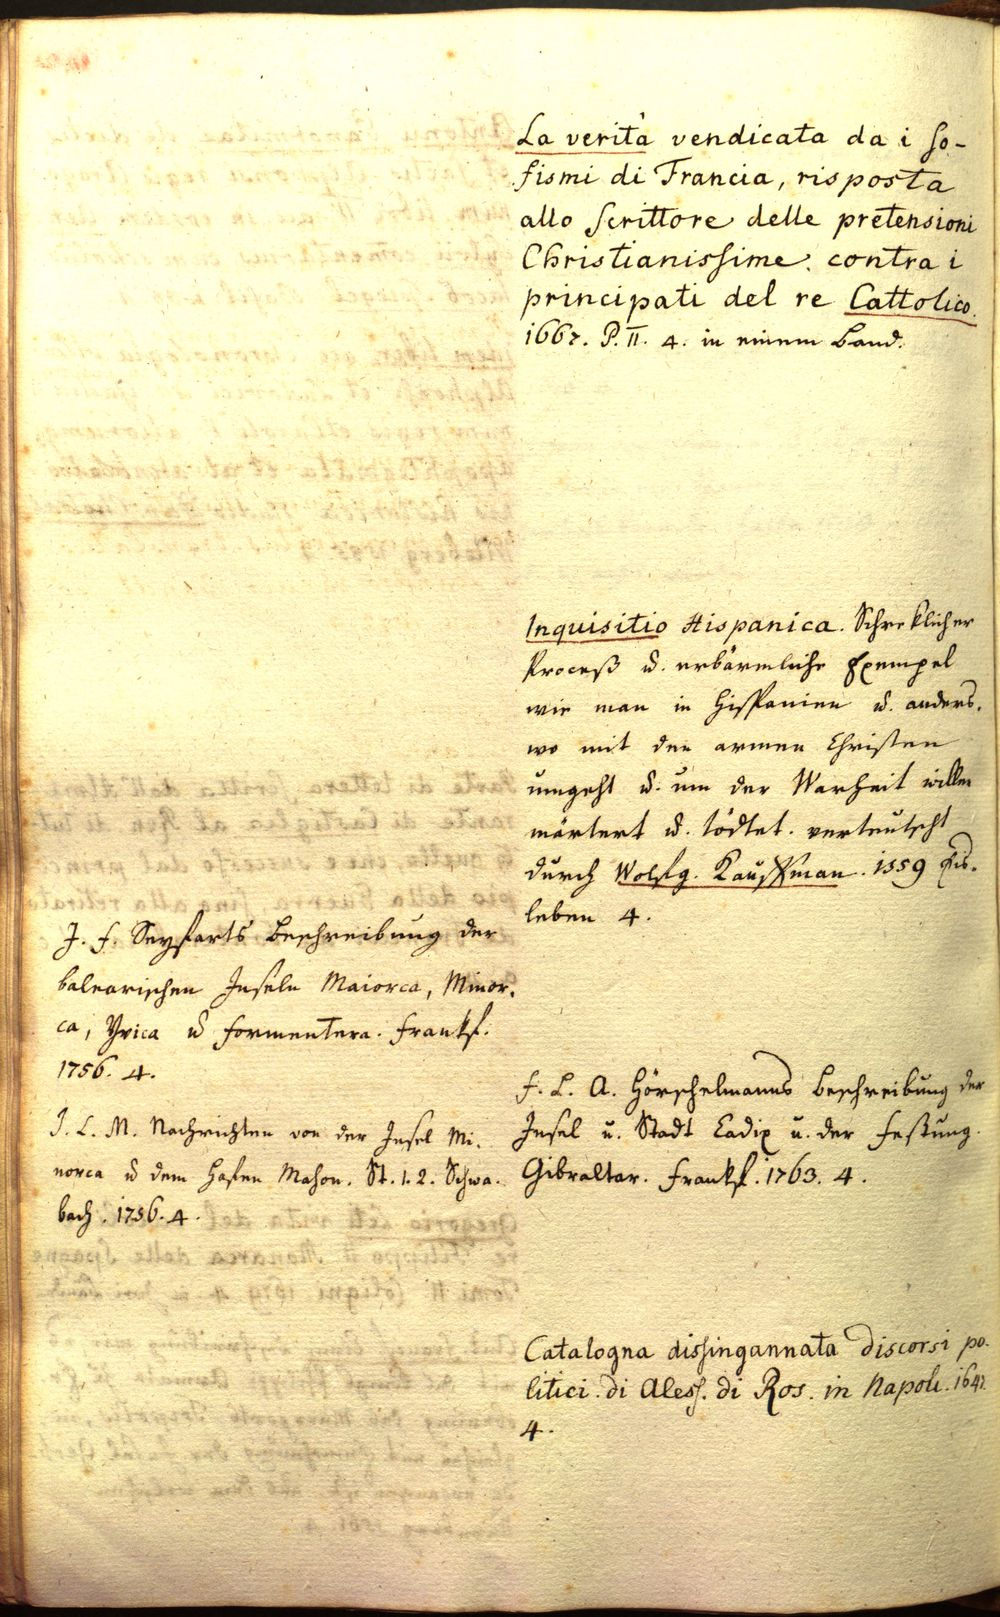 La verità vendicata da i so-
fismi di Francia, risposta
allo scrittore delle pretensioni
Christianissime. contra i
principati del re Cattolico.
1667. P. II. 4. in einem Band.
Inquisitio Hispanica. Schreklicher
Proceß u. erbärmliche Exempel
wie man in Hispanien u. anders-
wo mit den armen Christen
umgeht u. um der Warheit willen
märtert u. tödtet. verteutscht
durch Wolfg. Kauffman. 1559 Eis-
leben 4.
J. F. Seyfarts Beschreibung der
balearischen Inseln Maiorca, Minor-
ca, Yvica u Formentera. Frankf.
1756. 4.
J. L. M. Nachrichten von der Insel Mi-
norca u dem Hafen Mahon. St. 1. 2. Schwa-
bach. 1756. 4.
F. L. A. Hörschelmanns Beschreibung der
Insel u. Stadt Cadix u. der Festung
Gibraltar. Frankf. 1763. 4.
Catalogna dissingannata discorsi po-
litici di Aless. di Ros. in Napoli. 1647.
4.